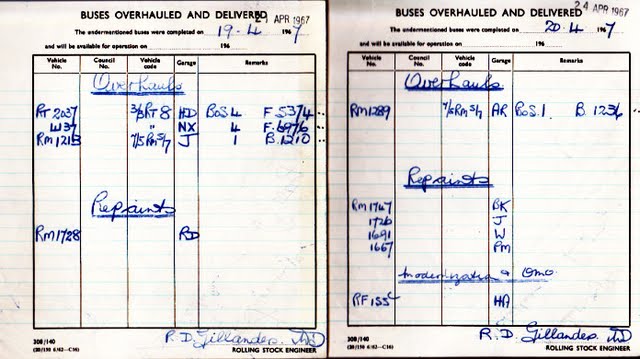 BUSES OVERHAULED AND DELIVERED
APR 1967
The undermentioned buses were completed on 19-4 1967
and will be available for operation on 196
Vehicle No. Council No. Vehicle code Garage Remarks
Overhauls
RT 2037 3/3RT8 HD BoS 4 F.5374
W37 " NX 4 F.6976
RM1213 7/5RM5/7 J 1 B.1210
Repaints
RM1728 RD
R.D. Gillander
308/140
ROLLING STOCK ENGINEER
BUSES OVERHAULED AND DELIVERED
24 APR 1967
The undermentioned buses were completed on 20-4 1967
and will be available for operation on 196
Vehicle No. Council No. Vehicle code Garage Remarks
Overhauls
RM1289 7/5RM5/7 AR BoS 1. B.1236
Repaints
RM1747 BK
1726 J
1691 W
1667 PM
Modernization & Omo.
RF155 HA
R.D. Gillander
308/140
ROLLING STOCK ENGINEER